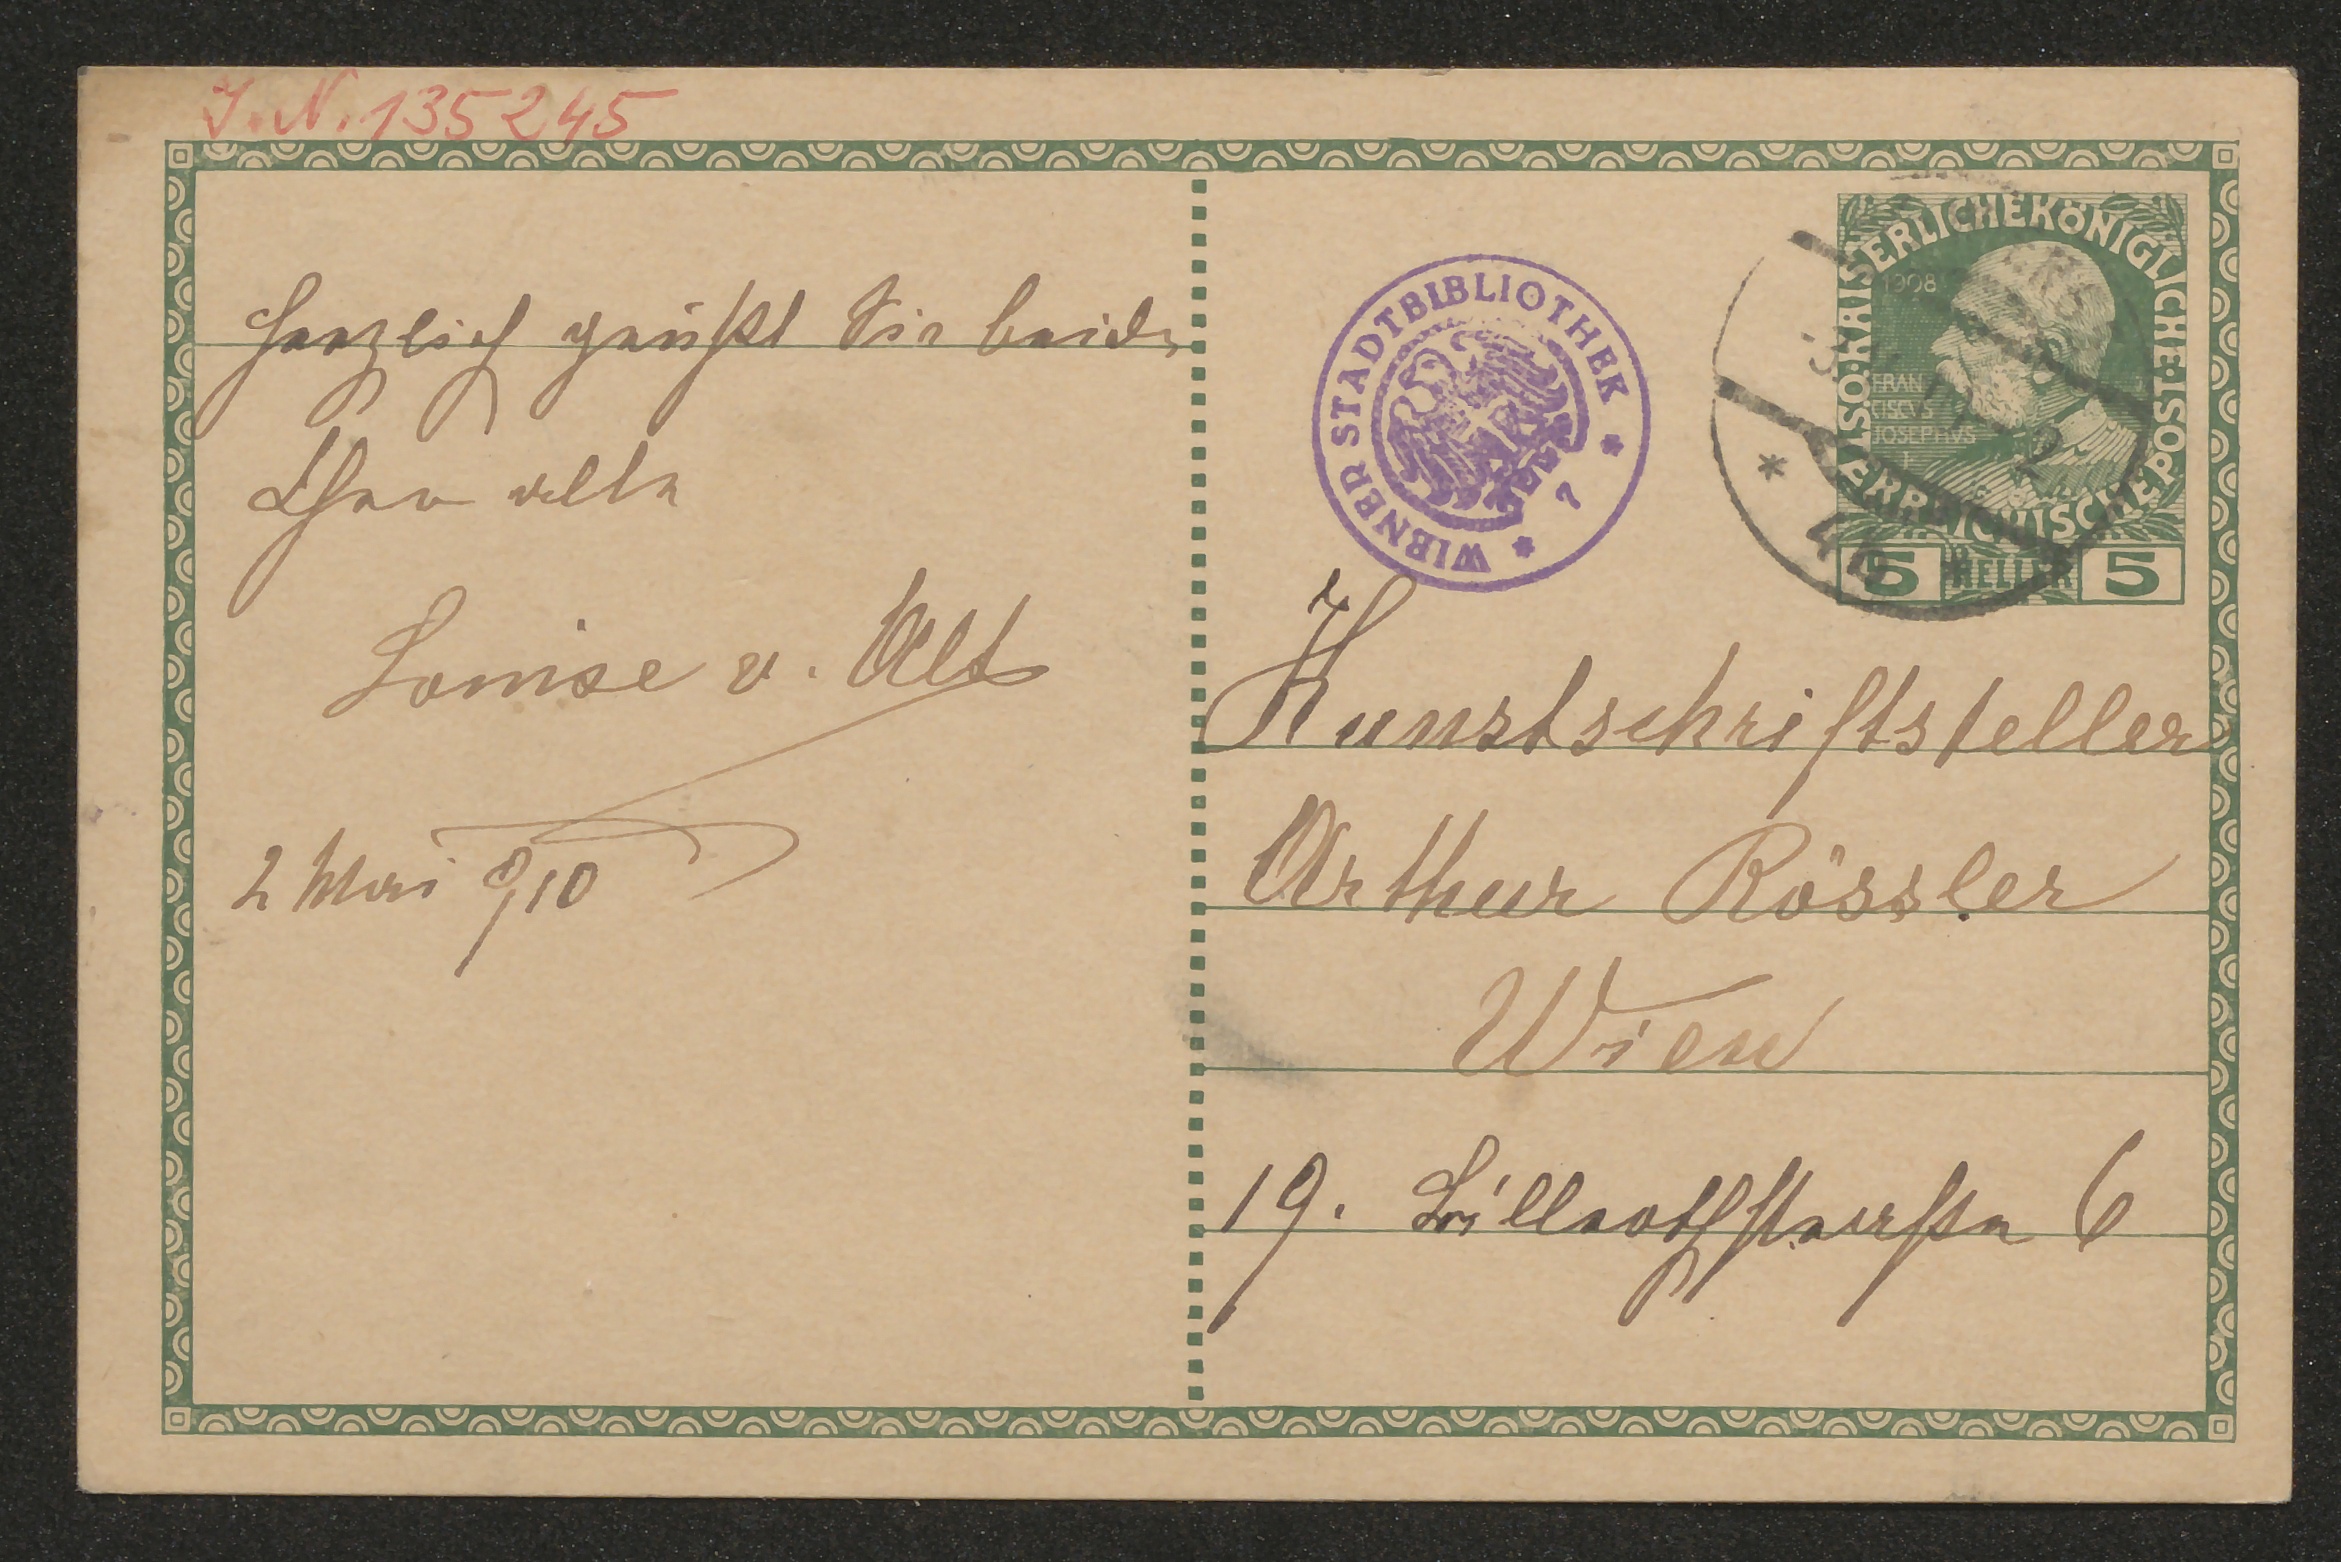 J.N. 135245
Herzlich grüßt Sie beide
Ihre alte
Louise v. Alt
2 Mai 910
WIENER STADTBIBLIOTHEK * 7 *
KAISERLICHE KÖNIGLICHE
ÖSTERREICHISCHE
1908
FRAN
CISCVS
JOSEPHVS
5 HELLER 5
Kunstschriftsteller
Arthur Rössler
Wien
19. Billrothstraße 6